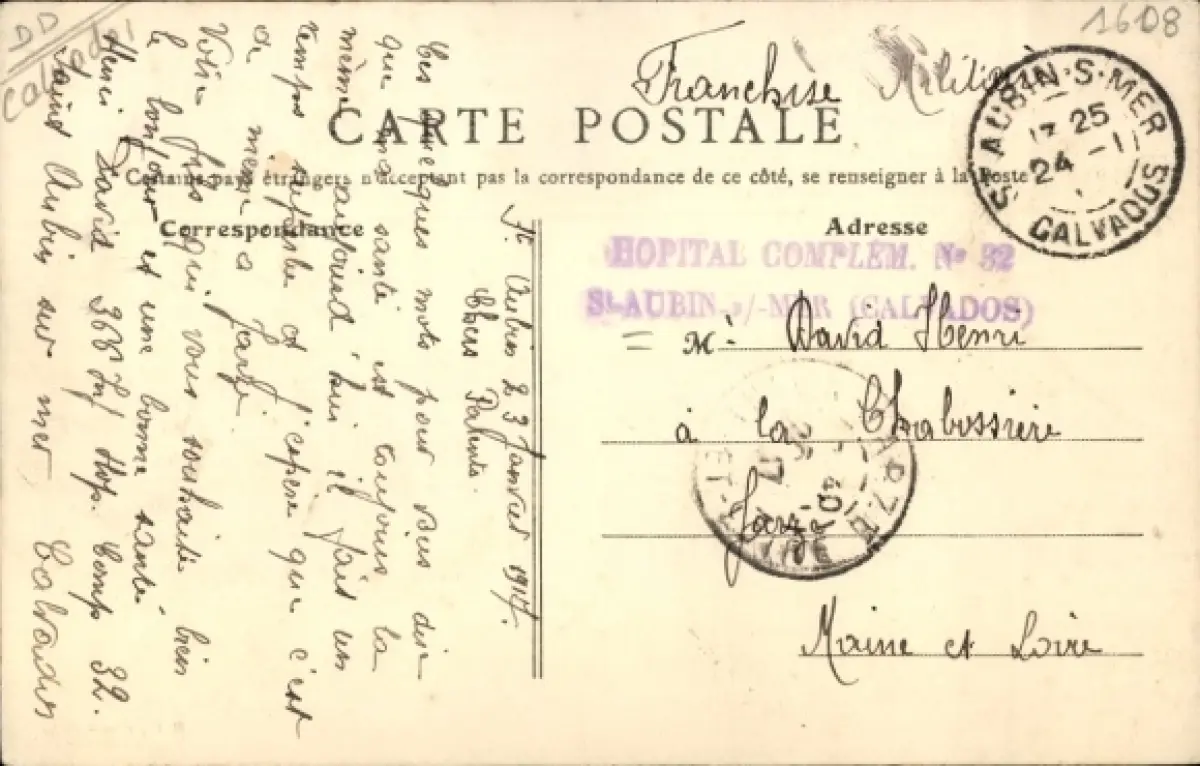 DD
Calvados
1608
Franchise Militaire
CARTE POSTALE
Certains pays étrangers n'acceptent pas la correspondance de ce côté, se renseigner à la Poste
Correspondance
Adresse
St AUBIN-S-MER
17 25
24 -1
CALVADOS
HOPITAL COMPLÈM. No 32
St-AUBIN-s/-MER (CALVADOS)
Mr David Henri
à la Chabossière
Jarzé
Maine et Loire
St Aubin 23 Janvier 1917.
Chers Parents.
Ces quelques mots pour vous dire
que ma santé est toujours la
même aujourd'hui il fait un
temps superbe et j'espère que c'est
de même a Jarzé
Votre fils qui vous souhaite bien
le bonjour et une bonne santé
Henri David 368 Inf Hop. Comp 32.
Saint Aubin sur mer Calvados